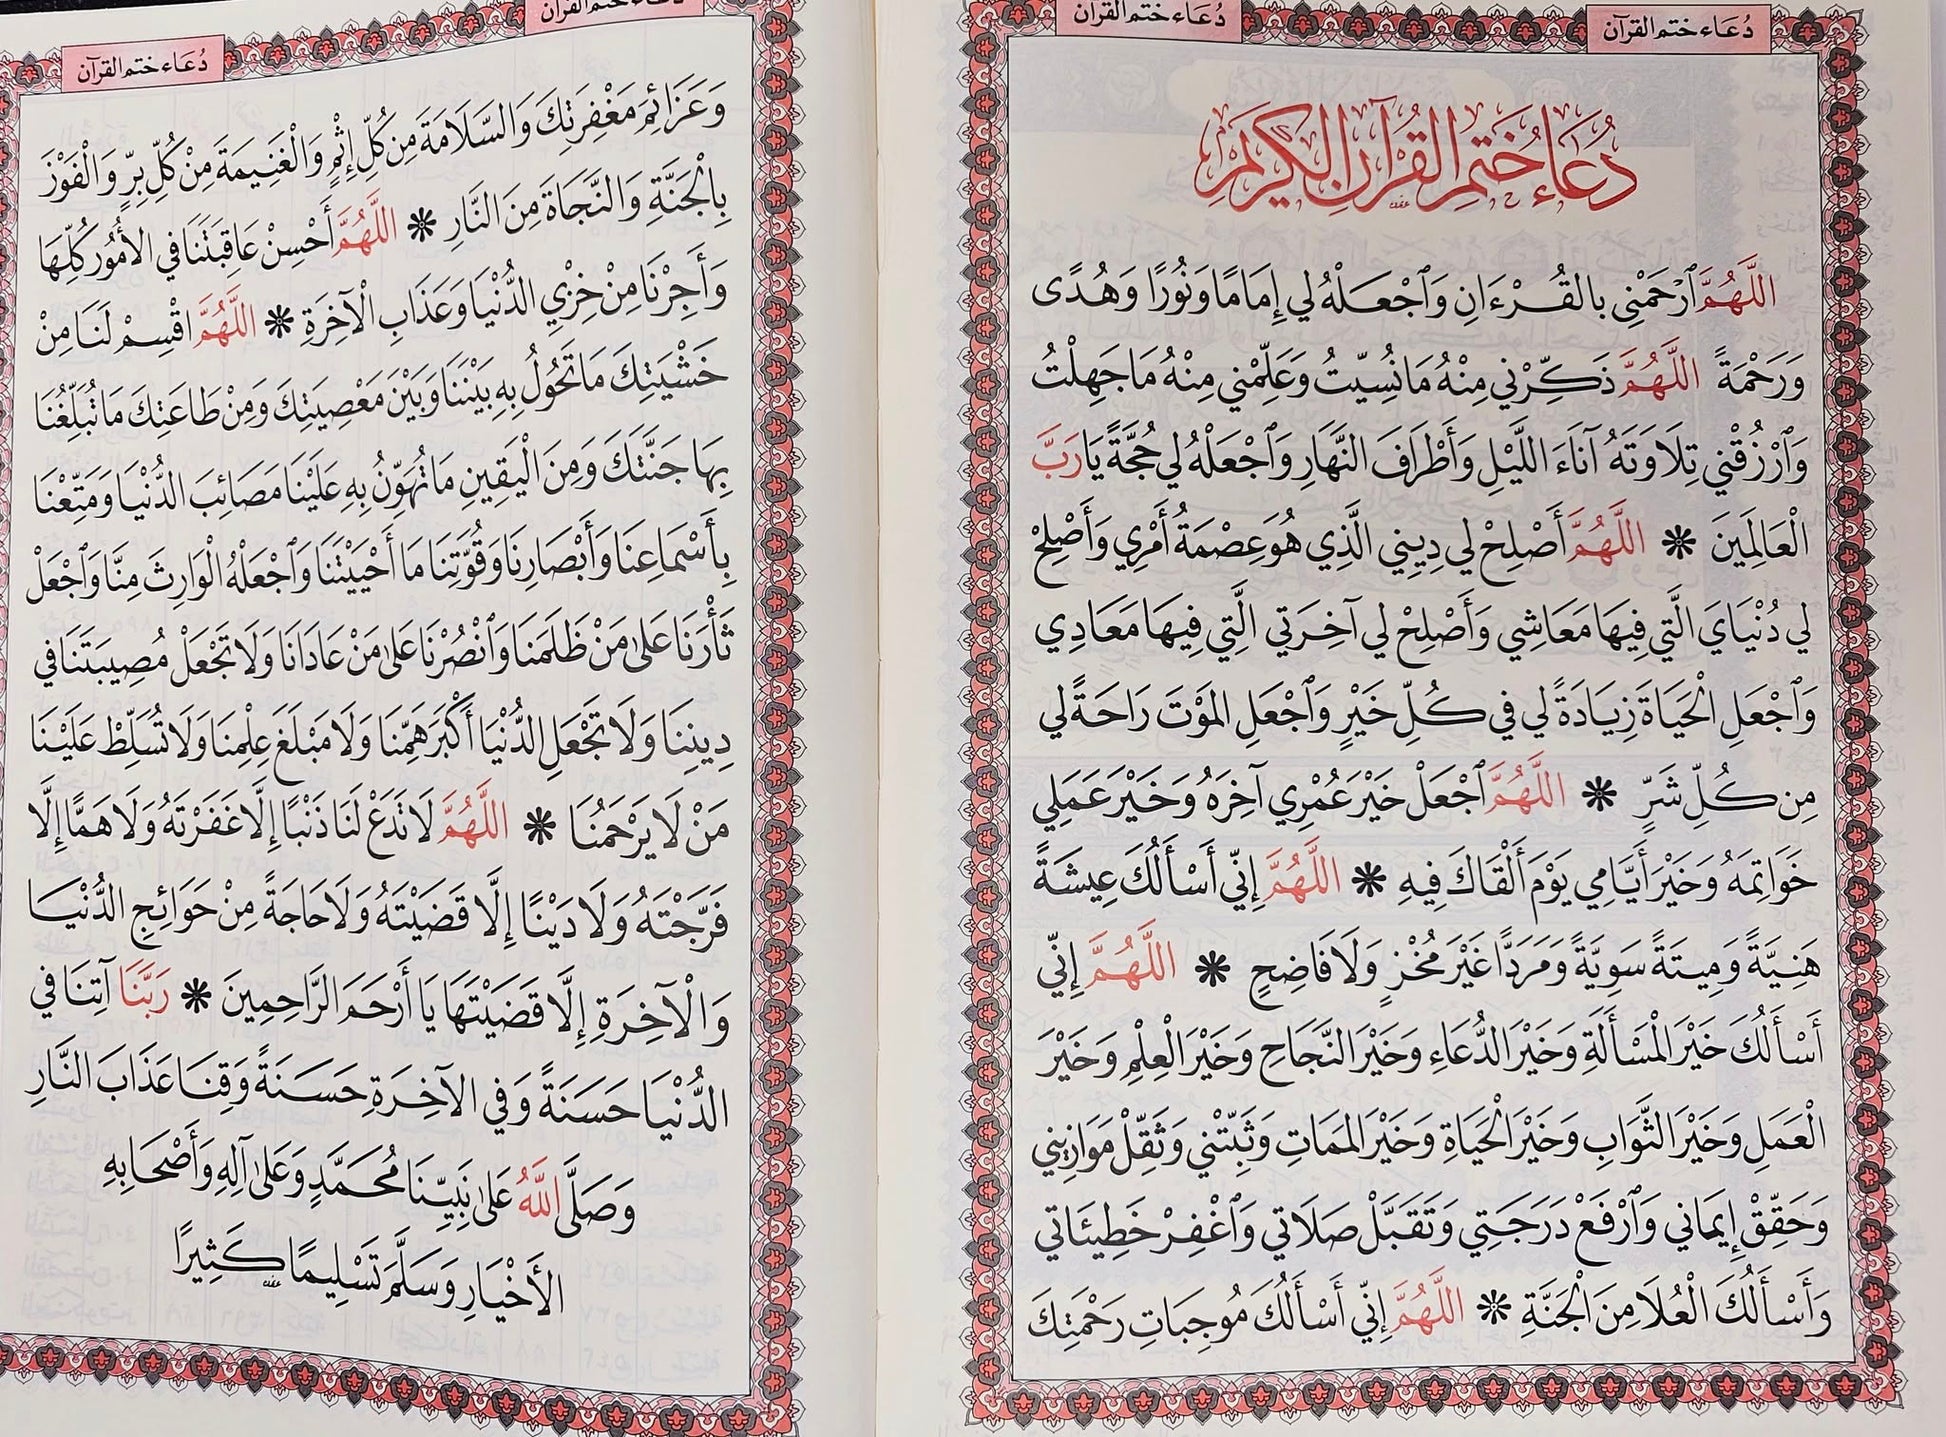 دُعَاء ختم القرآن
دُعَاء ختم القرآن
دُعَاءُ خَتْمِ الْقُرْآنِ الْكَرِيمِ
اللَّهُمَّ ٱرْحَمْنِي بالقُرْءَانِ وَٱجْعَلْهُ لي إِمَامًا وَنُورًا وَهُدًى
وَرَحْمَةً اللَّهُمَّ ذَكِّرْنِي مِنْهُ مَا نُسِّيتُ وَعَلِّمْنِي مِنْهُ مَا جَهِلْتُ
وَٱرْزُقْنِي تِلَاوَتَهُ آنَاءَ اللَّيْلِ وَأَطْرَافَ النَّهَارِ وَٱجْعَلْهُ لِي حُجَّةً يَا رَبَّ
الْعَالَمِينَ * اللَّهُمَّ أَصْلِحْ لِي دِينِي الَّذِي هُوَ عِصْمَةُ أَمْرِي وَأَصْلِحْ
لِي دُنْيَايَ الَّتِي فِيهَا مَعَاشِي وَأَصْلِحْ لِي آخِرَتِي الَّتِي فِيهَا مَعَادِي
وَٱجْعَلِ الْحَيَاةَ زِيَادَةً لِي فِي كُلِّ خَيْرٍ وَٱجْعَلِ المَوْتَ رَاحَةً لِي
مِن كُلِّ شَرٍّ * اللَّهُمَّ ٱجْعَلْ خَيْرَ عُمْرِي آخِرَهُ وَخَيْرَ عَمَلِي
خَوَاتِمَهُ وَخَيْرَ أَيَّامِي يَوْمَ أَلْقَاكَ فِيهِ * اللَّهُمَّ إِنِّي أَسْأَلُكَ عِيشَةً
هَنِيَّةً وَمِيتَةً سَوِيَّةً وَمَرَدًّا غَيْرَ مُخْزٍ وَلَا فَاضِحٍ * اللَّهُمَّ إِنِّي
أَسْأَلُكَ خَيْرَ الْمَسْأَلَةِ وَخَيْرَ الدُّعَاءِ وَخَيْرَ النَّجَاحِ وَخَيْرَ الْعِلْمِ وَخَيْرَ
الْعَمَلِ وَخَيْرَ الثَّوَابِ وَخَيْرَ الْحَيَاةِ وَخَيْرَ المَمَاتِ وَثَبِّتْنِي وَثَقِّلْ مَوَازِينِي
وَحَقِّقْ إِيمَانِي وَٱرْفَعْ دَرَجَتِي وَتَقَبَّلْ صَلَاتِي وَٱغْفِرْ خَطِيئَاتِي
وَأَسْأَلُكَ الْعُلَا مِنَ الْجَنَّةِ * اللَّهُمَّ إِنِّي أَسْأَلُكَ مُوجِبَاتِ رَحْمَتِكَ
دُعَاء ختم القرآن
دُعَاء ختم القرآن
وَعَزَائِمَ مَغْفِرَتِكَ وَالسَّلَامَةَ مِن كُلِّ إِثْمٍ وَالْغَنِيمَةَ مِنْ كُلِّ بِرٍّ وَالْفَوْزَ
بِالْجَنَّةِ وَالنَّجَاةَ مِنَ النَّارِ * اللَّهُمَّ أَحْسِنْ عَاقِبَتَنَا فِي الأُمُورِ كُلِّهَا
وَأَجِرْنَا مِنْ خِزْيِ الدُّنْيَا وَعَذَابِ الْآخِرَةِ * اللَّهُمَّ اقْسِمْ لَنَا مِنْ
خَشْيَتِكَ مَا تَحُولُ بِهِ بَيْنَنَا وَبَيْنَ مَعْصِيَتِكَ وَمِنْ طَاعَتِكَ مَا تُبَلِّغُنَا
بِهَا جَنَّتَكَ وَمِنَ الْيَقِينِ مَا تُهَوِّنُ بِهِ عَلَيْنَا مَصَائِبَ الدُّنْيَا وَمَتِّعْنَا
بِأَسْمَاعِنَا وَأَبْصَارِنَا وَقُوَّتِنَا مَا أَحْيَيْتَنَا وَٱجْعَلْهُ الْوَارِثَ مِنَّا وَٱجْعَلْ
ثَأْرَنَا عَلَى مَنْ ظَلَمَنَا وَٱنْصُرْنَا عَلَى مَنْ عَادَانَا وَلَا تَجْعَلْ مُصِيبَتَنَا فِي
دِينِنَا وَلَا تَجْعَلِ الدُّنْيَا أَكْبَرَ هَمِّنَا وَلَا مَبْلَغَ عِلْمِنَا وَلَا تُسَلِّطْ عَلَيْنَا
مَنْ لَا يَرْحَمُنَا * اللَّهُمَّ لَا تَدَعْ لَنَا ذَنْبًا إِلَّا غَفَرْتَهُ وَلَا هَمًّا إِلَّا
فَرَّجْتَهُ وَلَا دَيْنًا إِلَّا قَضَيْتَهُ وَلَا حَاجَةً مِنْ حَوَائِجِ الدُّنْيَا
وَالْآخِرَةِ إِلَّا قَضَيْتَهَا يَا أَرْحَمَ الرَّاحِمِينَ * رَبَّنَا آتِنَا فِي
الدُّنْيَا حَسَنَةً وَفِي الآخِرَةِ حَسَنَةً وَقِنَا عَذَابَ النَّارِ
وَصَلَّى اللَّهُ عَلَى نَبِيِّنَا مُحَمَّدٍ وَعَلَى آلِهِ وَأَصْحَابِهِ
الأَخْيَارِ وَسَلَّمَ تَسْلِيمًا كَثِيرًا